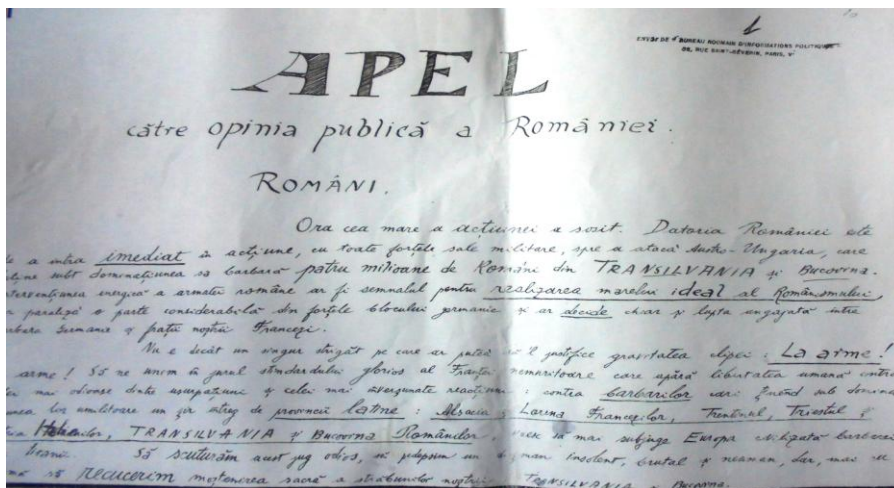 1
BUREAU ROUMAIN D'INFORMATIONS POLITIQUES
RUE SAINT-SÉVERIN, PARIS, V
APEL
către opinia publică a României.
ROMÂNI.
Ora cea mare a acțiunei a sosit. Datoria României este
a intra imediat în acțiune, cu toate forțele sale militare, spre a atacà Austro-Ungaria, care
ține subt dominațiunea sa barbară patru milioane de Români din TRANSILVANIA și Bucovina.
intervențiunea energică a armatei române ar fi semnalul pentru realizarea marelui ideal al Românismului,
paraliza o parte considerabilă din forțele blocului germanic și ar decide chiar și lupta angajată între
Germanie și frații noștri Francezi.
Nu e decât un singur strigăt pe care ar putea să'l justifice gravitatea clipei: La arme!
arme! Să ne unim în jurul standardului glorios al Franței nemuritoare care apără libertatea umană contra
mai odioase dintre usurpațiuni și celei mai nerușinate reacțiuni: contra barbarilor cari ținând sub
lor umilitoare un șir întreg de provincii latine: Alsacia și Lorena Francezilor, Trentinul, Triestul și
TRANSILVANIA și Bucovina Românilor, să mai subjuge Europa civilizată
Să scuturăm acest jug odios, să pedepsim un dușman insolent, brutal și neaman, dar, mai
să recucerim moștenirea sacră a străbunilor noștri: TRANSILVANIA și Bucovina.